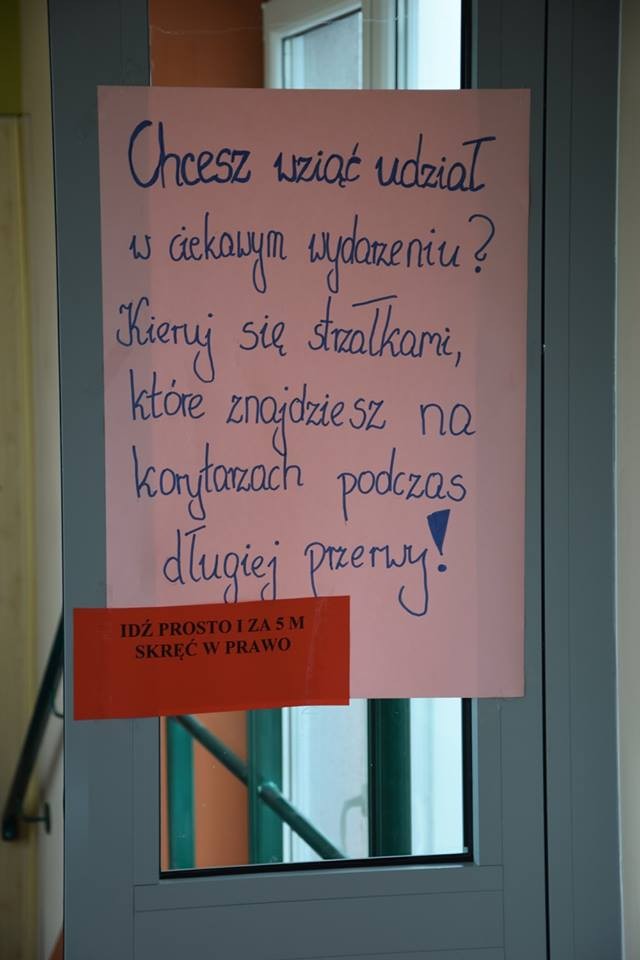 Chcesz wziąć udział
w ciekawym wydarzeniu?
Kieruj się strzałkami,
które znajdziesz na
korytarzach podczas
długiej przerwy!
IDŹ PROSTO I ZA 5 M
SKRĘĆ W PRAWO